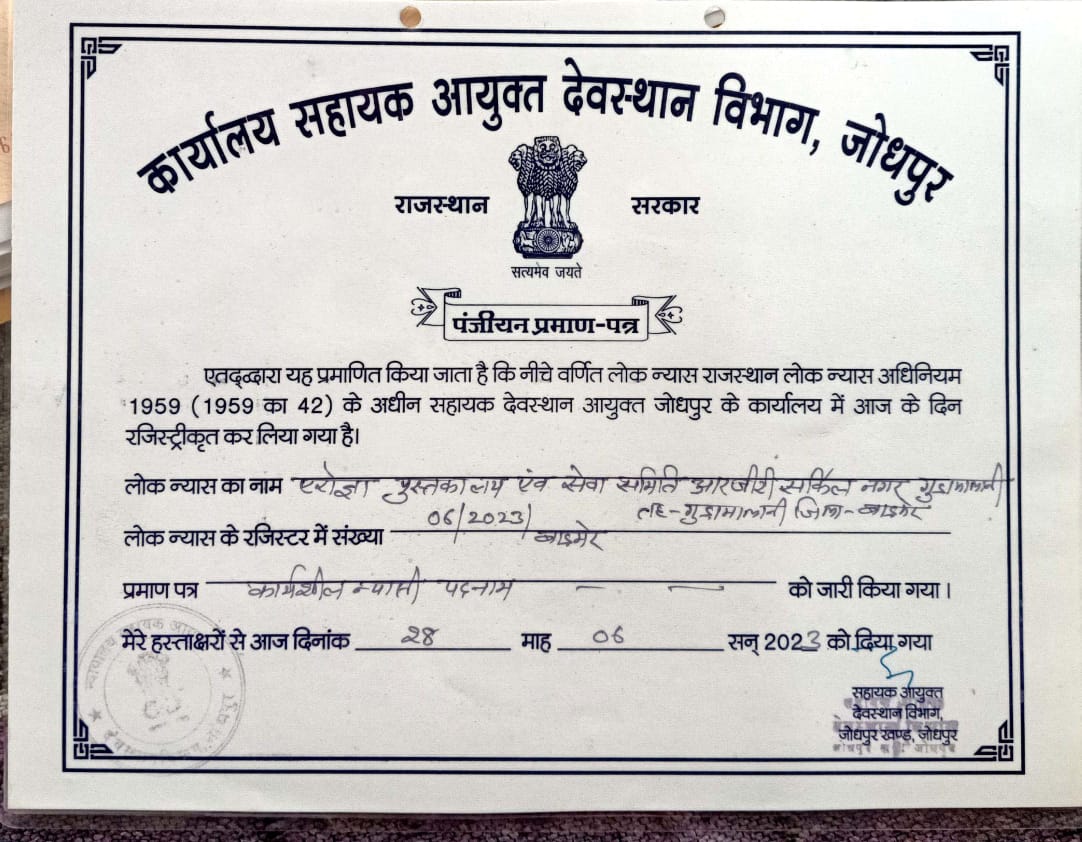 कार्यालय सहायक आयुक्त देवस्थान विभाग, जोधपुर
राजस्थान सरकार
सत्यमेव जयते
पंजीयन प्रमाण-पत्र
एतद्द्वारा यह प्रमाणित किया जाता है कि नीचे वर्णित लोक न्यास राजस्थान लोक न्यास अधिनियम
1959 (1959 का 42) के अधीन सहायक देवस्थान आयुक्त जोधपुर के कार्यालय में आज के दिन
रजिस्ट्रीकृत कर लिया गया है।
लोक न्यास का नाम पुस्तकालय एंव सेवा समिति आरजीटी सर्किल नगर गुडामालानी
तह-गुडामालानी जिला-बाडमेर
लोक न्यास के रजिस्टर में संख्या 06/2023/ बाडमेर
प्रमाण पत्र कार्यशील न्यासी पदनाम को जारी किया गया।
मेरे हस्ताक्षरों से आज दिनांक 28 माह 06 सन् 2023 को दिया गया
सहायक आयुक्त
देवस्थान विभाग,
जोधपुर खण्ड, जोधपुर